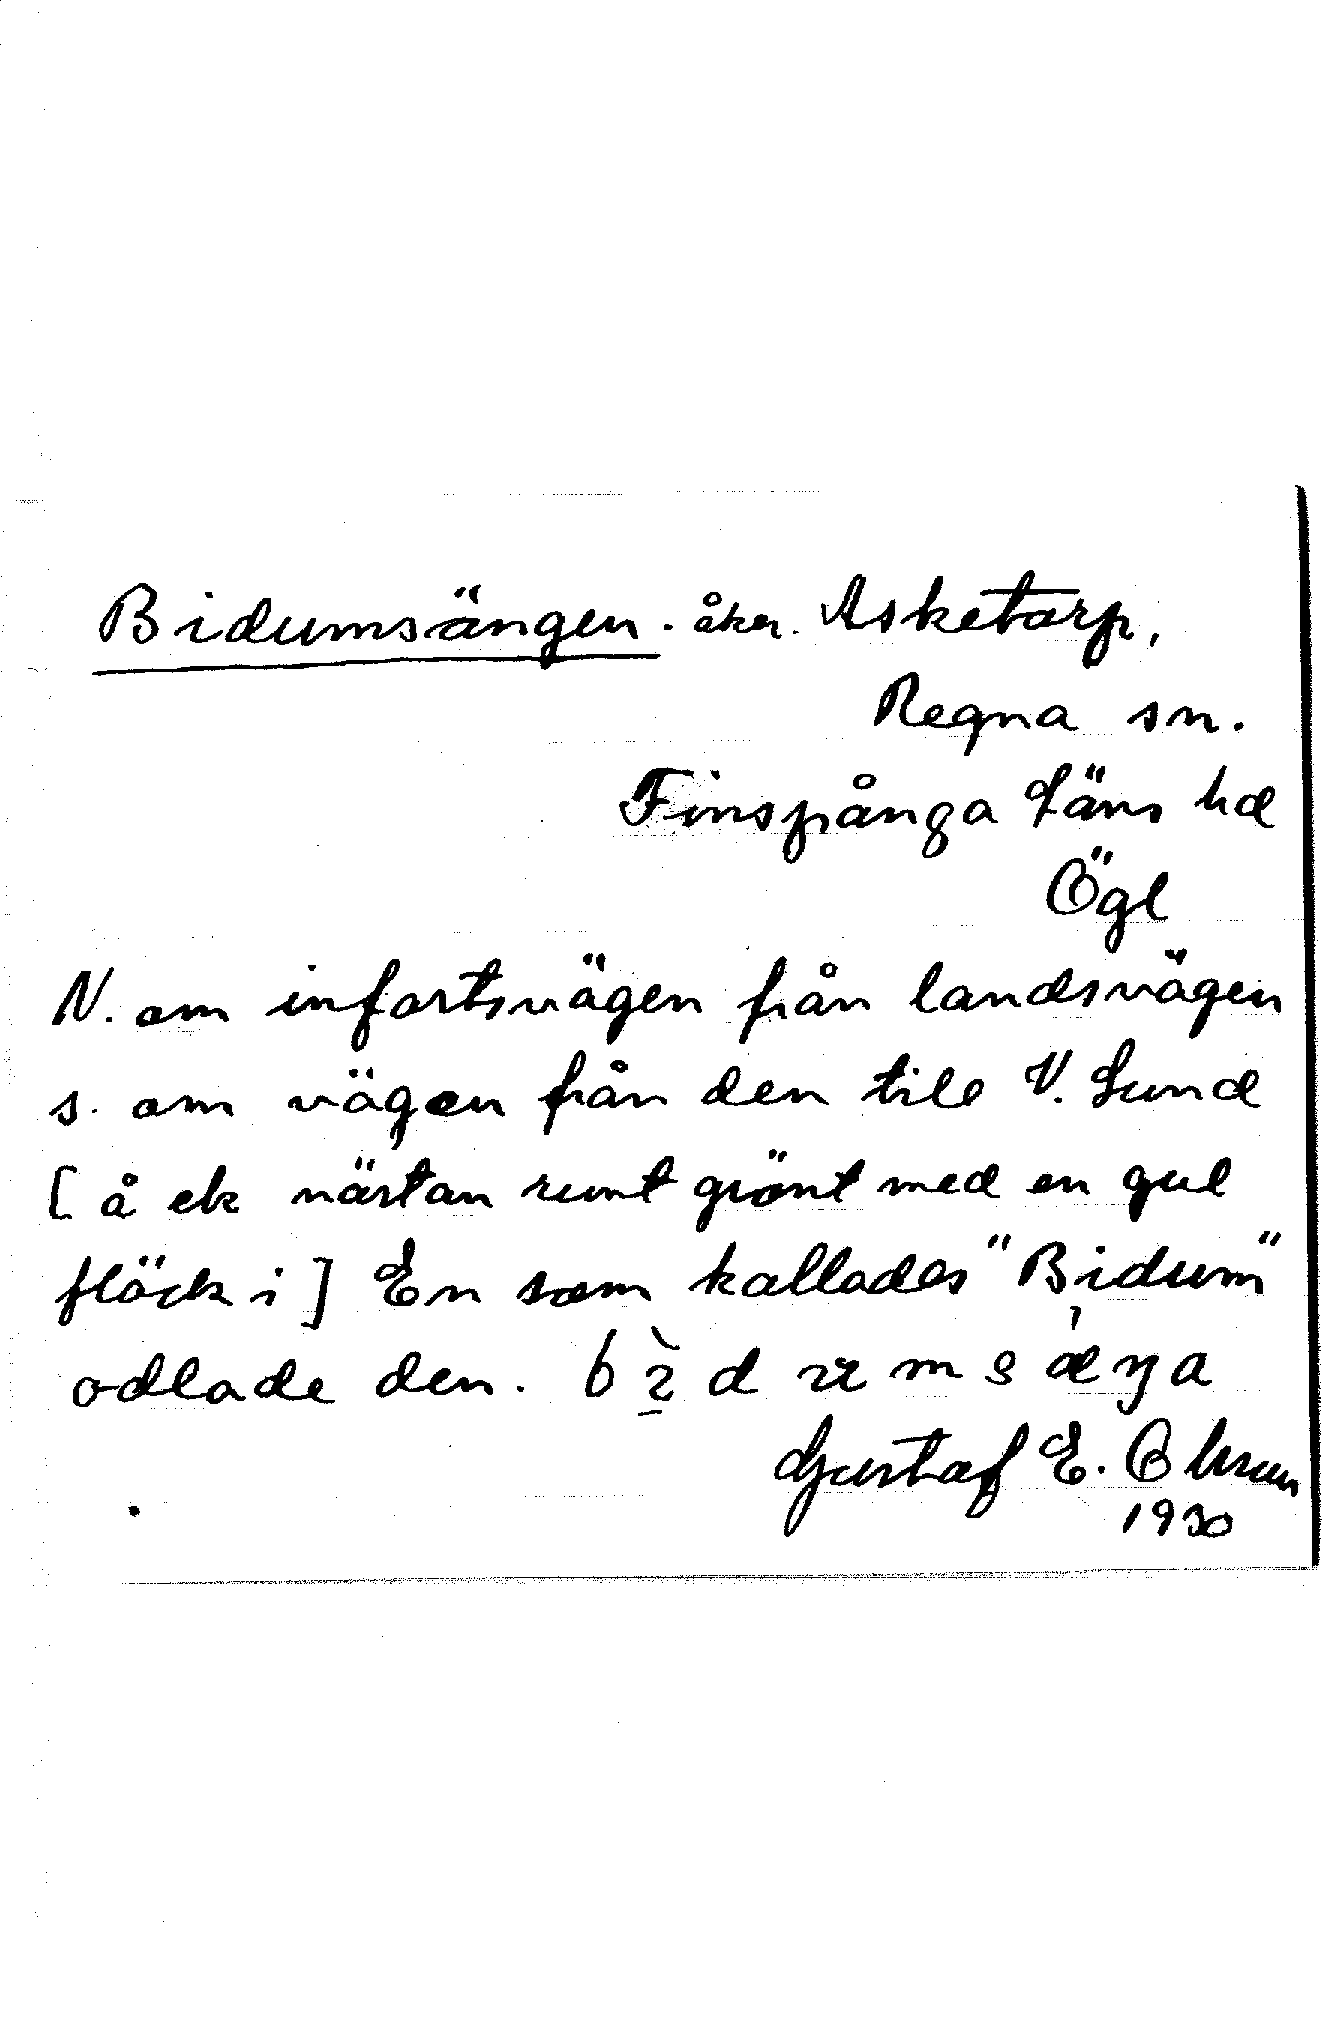 Bidumsängen. åker. Asketorp,
Regna sn.
Finspånga Läns hd
Ögl
N. om infartsvägen från landsvägen
s. om vägen från den till V. Lund
[å ek nästan runt grönt med en gul
fläck i] En som kallades "Bidum"
odlade den.
Gustaf E. Olsson
1930